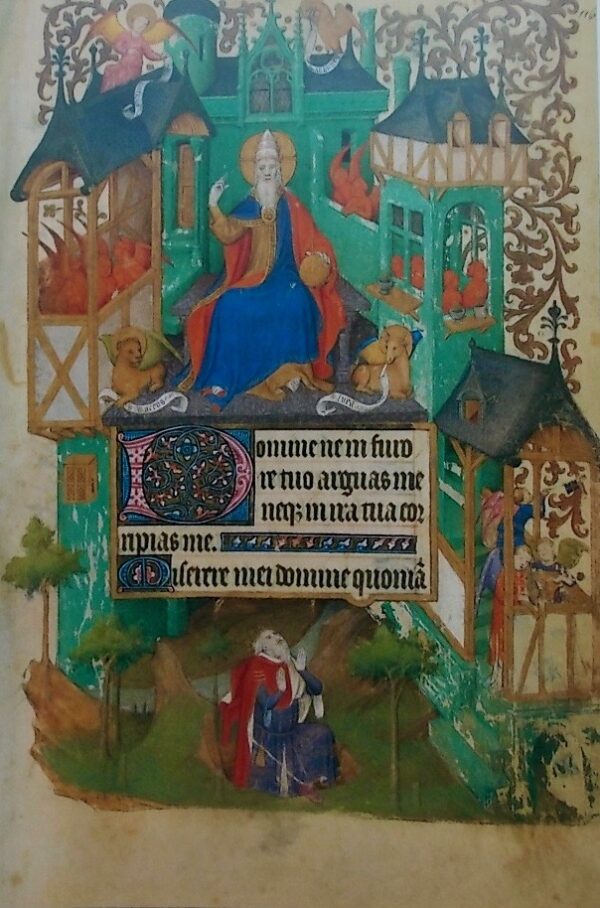 marcus
luca
Domine ne in furo
re tuo arguas me
neqꝫ in ira tua cor
ripias me.
Miserere mei domine quoniã